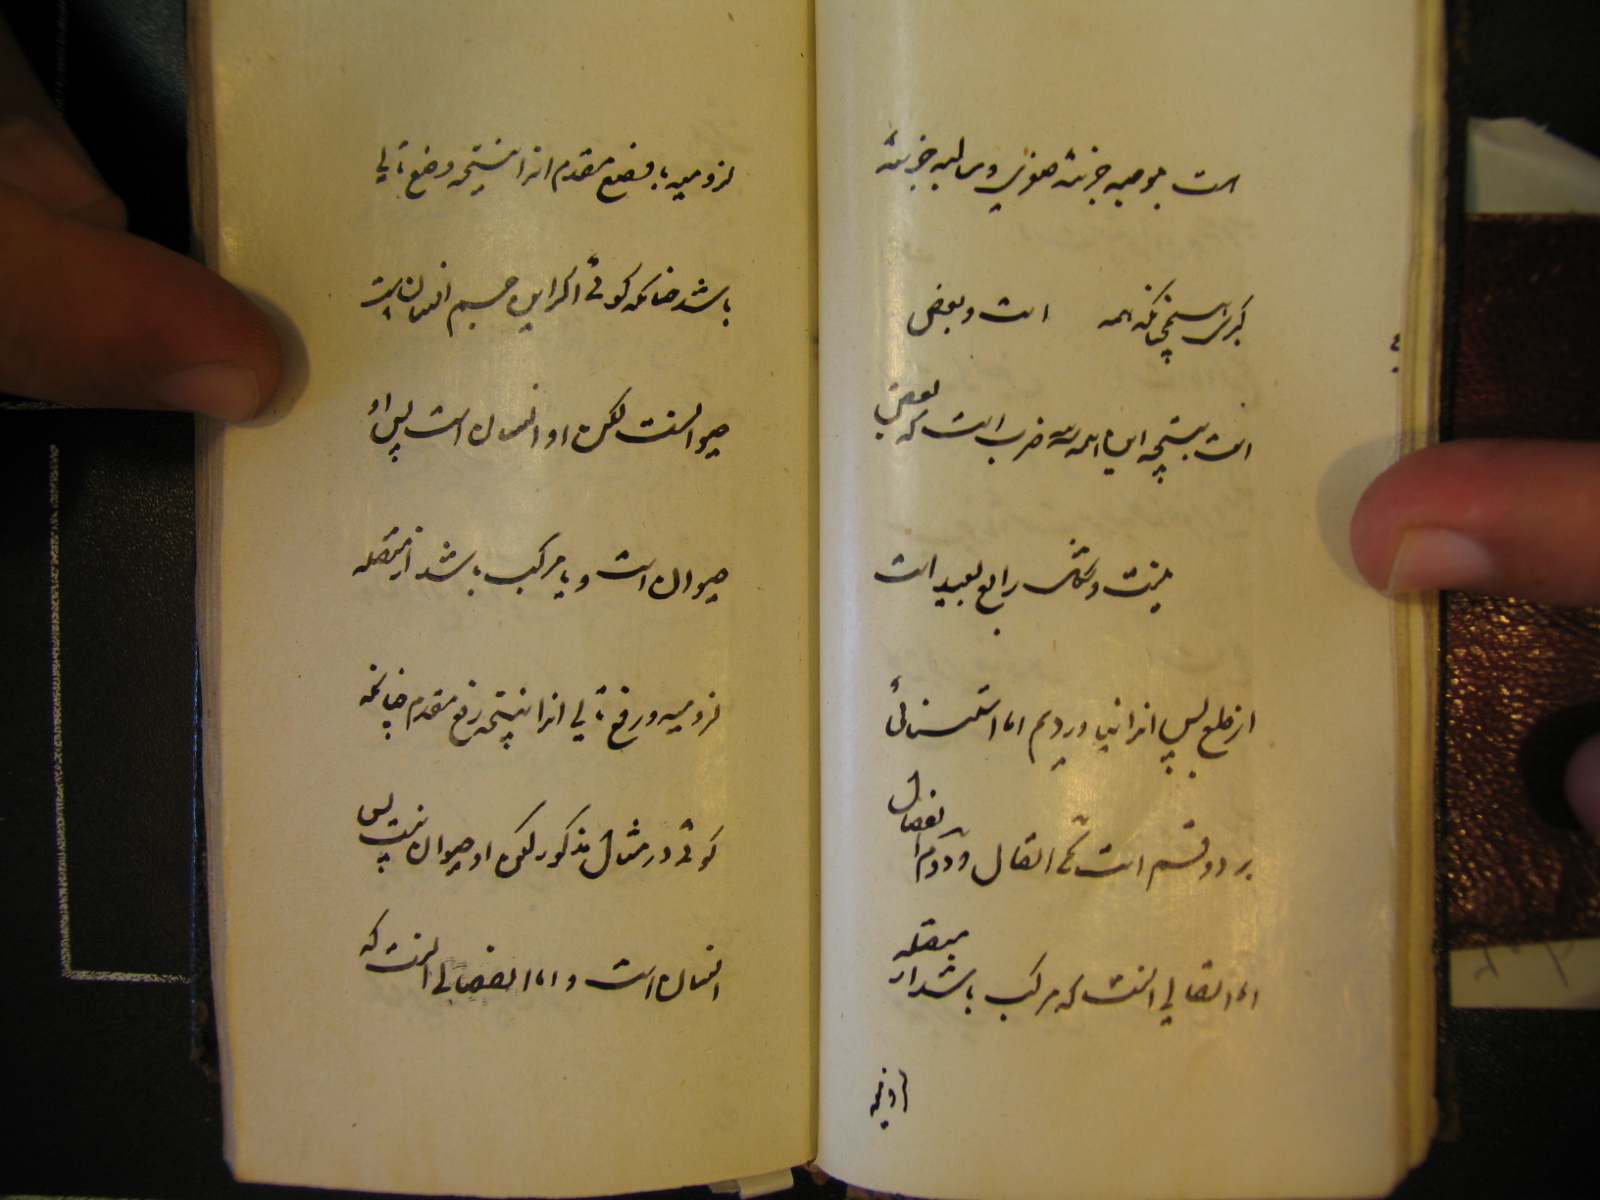 است موجبه جزئیه صغری و سالبه جزئیه
کبری همچنانکه همه است و بعض
است نتیجه این هر سه ضرب است که بعض
نیست و شکل رابع بعید است
از طبع پس انرا نیاوردیم اما استثنائی
بر دو قسم است یکی اتصال و دوم انفصال
اما اتصالی انست که مرکب باشد از متصله
لزومیه
لزومیه با وضع مقدم انرا نتیجه وضع تالی
باشد چنانکه گوئی اگر این جسم انسان است
حیوانست لکن او انسان است پس او
حیوان است و یا مرکب باشد از متصله
لزومیه و رفع تالی انرا نتیجه رفع مقدم چنانکه
گوئی در مثال مذکور لکن او حیوان نیست پس
انسان است و اما انفصالی انست که